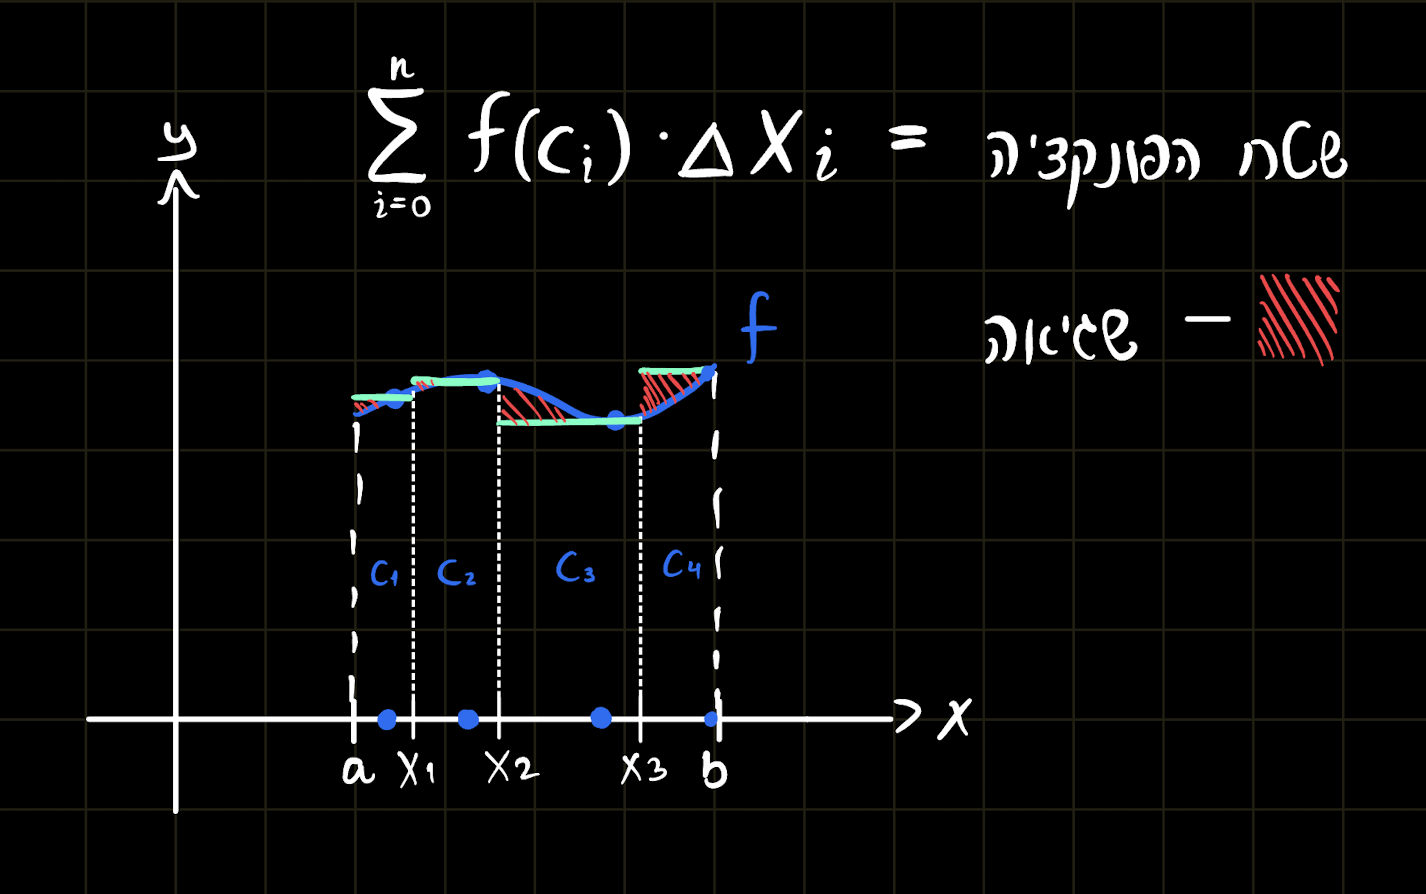 n
y
∑ f(cᵢ) · ΔXᵢ = שטח הפונקציה
i=0
f
שגיאה –
C₁ C₂ C₃ C₄
x
a X₁ X₂ X₃ b